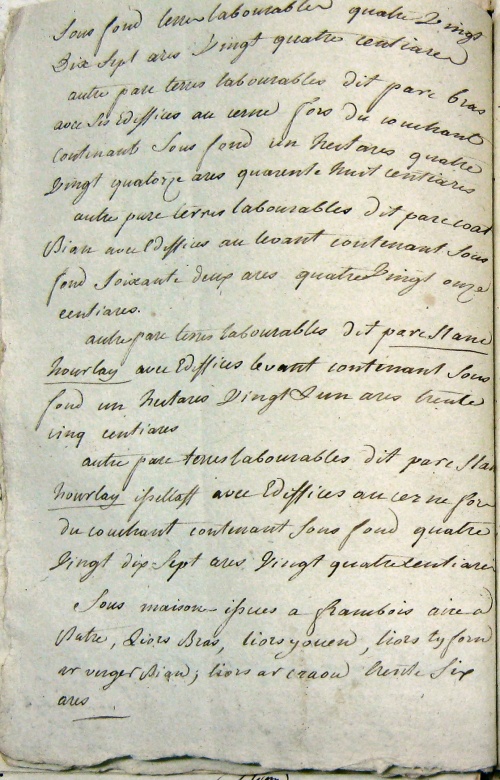 Sous fond terre labourable quatre Vingt
Dix Sept ares Vingt quatre centiares
autre parc terres labourables dit parc bras
avec ses Ediffices au cerne fors du couchant
contenant Sous fond un hectares quatre
Vingt quatorze ares quarente huit centiares
autre parc terres labourables dit parc coat
Bian avec Ediffices au levant contenant Sous
fond Soixante deux ares quatre Vingt onze
centiares.
autre parc terres labourables dit parc Stanc
hourlay avec Ediffices levant contenant Sous
fond un hectares Vingt & un ares trente
cinq centiares
autre parc terres labourables dit parc Stan
hourlay isellaff avec Ediffices au cerne fors
du couchant contenant Sous fond quatre
Vingt dix-Sept ares Vingt quatre centiares
Sous maison issues a frambois aire a
Batre, Liors Bras, liors youen, liors ty forn
ar verger Bian; liors ar craou trente Six
ares